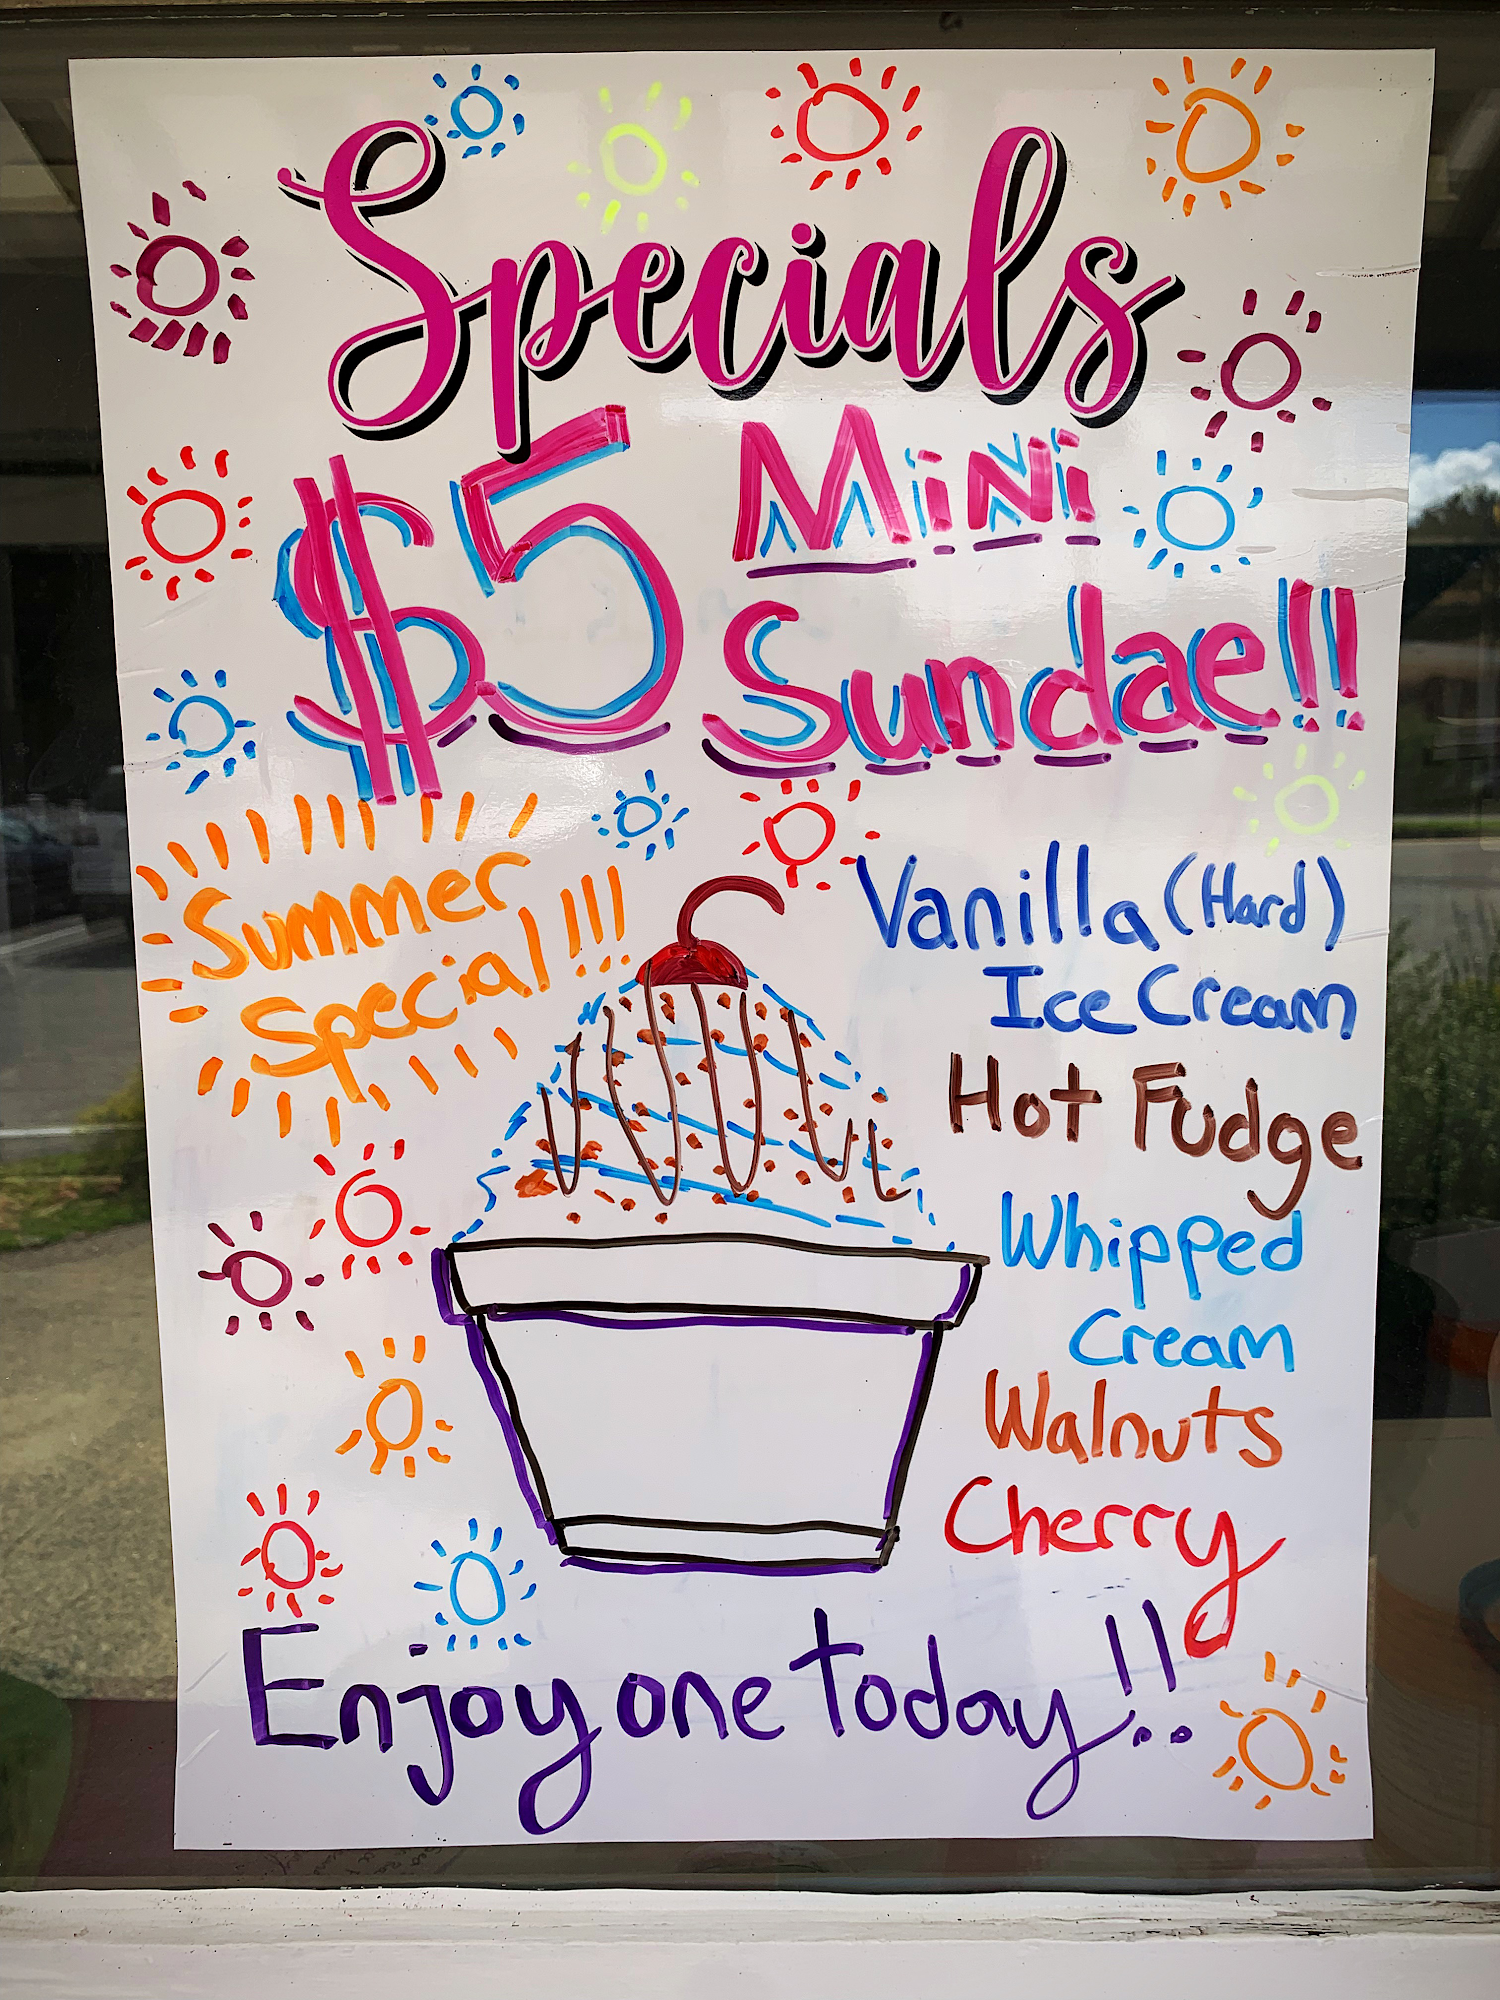 Specials
$5 Mini
Sundae!!
Summer
Special!!!
Vanilla (Hard)
Ice Cream
Hot Fudge
Whipped
Cream
Walnuts
Cherry
Enjoy one today!!